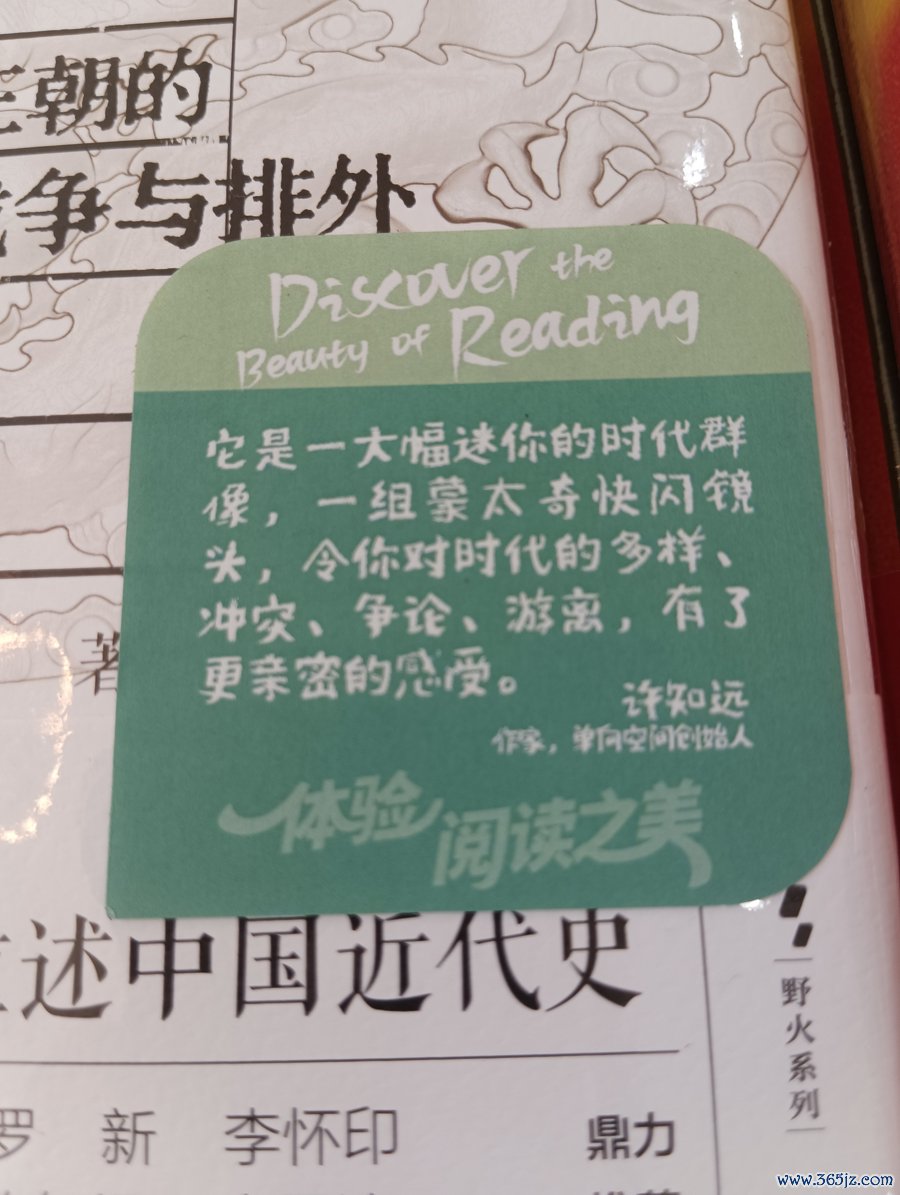 王朝的
战争与排外
Discover the
Beauty of Reading
它是一大幅迷你的时代群
像，一组蒙太奇快闪镜
头，令你对时代的多样、
冲突、争论、游离，有了
更亲密的感受。
许知远
作家，单向空间创始人
体验
阅读之美
著
述中国近代史
野火系列
罗 新 李怀印 鼎力
www.365jz.com